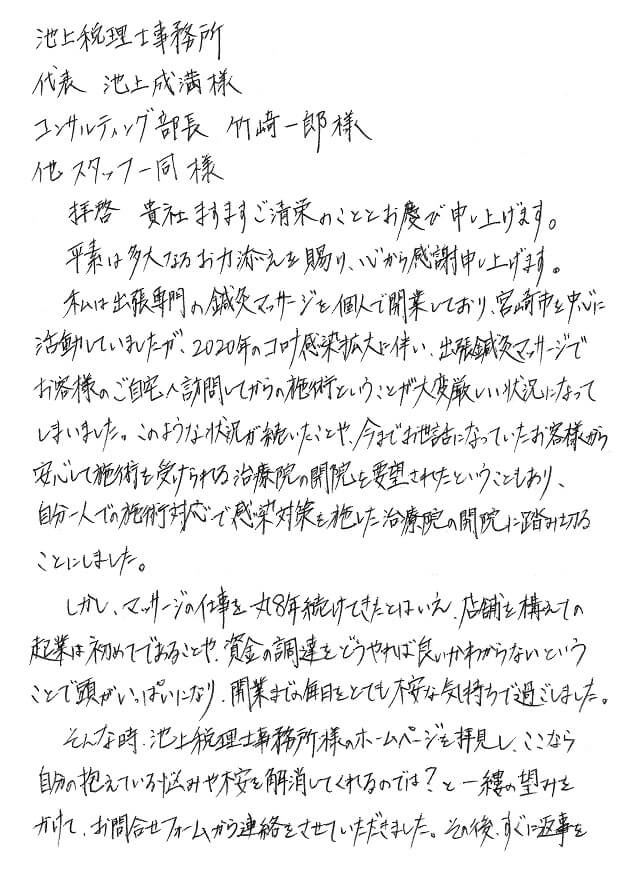 池上税理士事務所
代表 池上成満様
コンサルティング部長 竹﨑一郎様
他 スタッフ一同 様
拝啓 貴社ますますご清栄のこととお慶び申し上げます。
平素は多大なるお力添えを賜り、心から感謝申し上げます。
私は出張専門の鍼灸マッサージを個人で開業しており、宮崎市を中心に
活動していましたが、2020年のコロナ感染拡大に伴い、出張鍼灸マッサージで
お客様のご自宅へ訪問してからの施術ということが大変厳しい状況になって
しまいました。このような状況が続いたことや、今までお世話になっていたお客様から
安心して施術を受けられる治療院の開院を要望されたということもあり、
自分一人での施術対応で感染対策を施した治療院の開院に踏み切る
ことにしました。
しかし、マッサージの仕事を丸8年続けてきたとはいえ、店舗を構えての
起業は初めてであることや、資金の調達をどうやれば良いかわからないという
ことで頭がいっぱいになり、開業までの毎日をとても不安な気持ちで過ごしました。
そんな時、池上税理士事務所様のホームページを拝見し、ここなら
自分の抱えている悩みや不安を解消してくれるのでは?と一縷の望みを
かけて、お問合せフォームから連絡をさせていただきました。その後、すぐに返事を